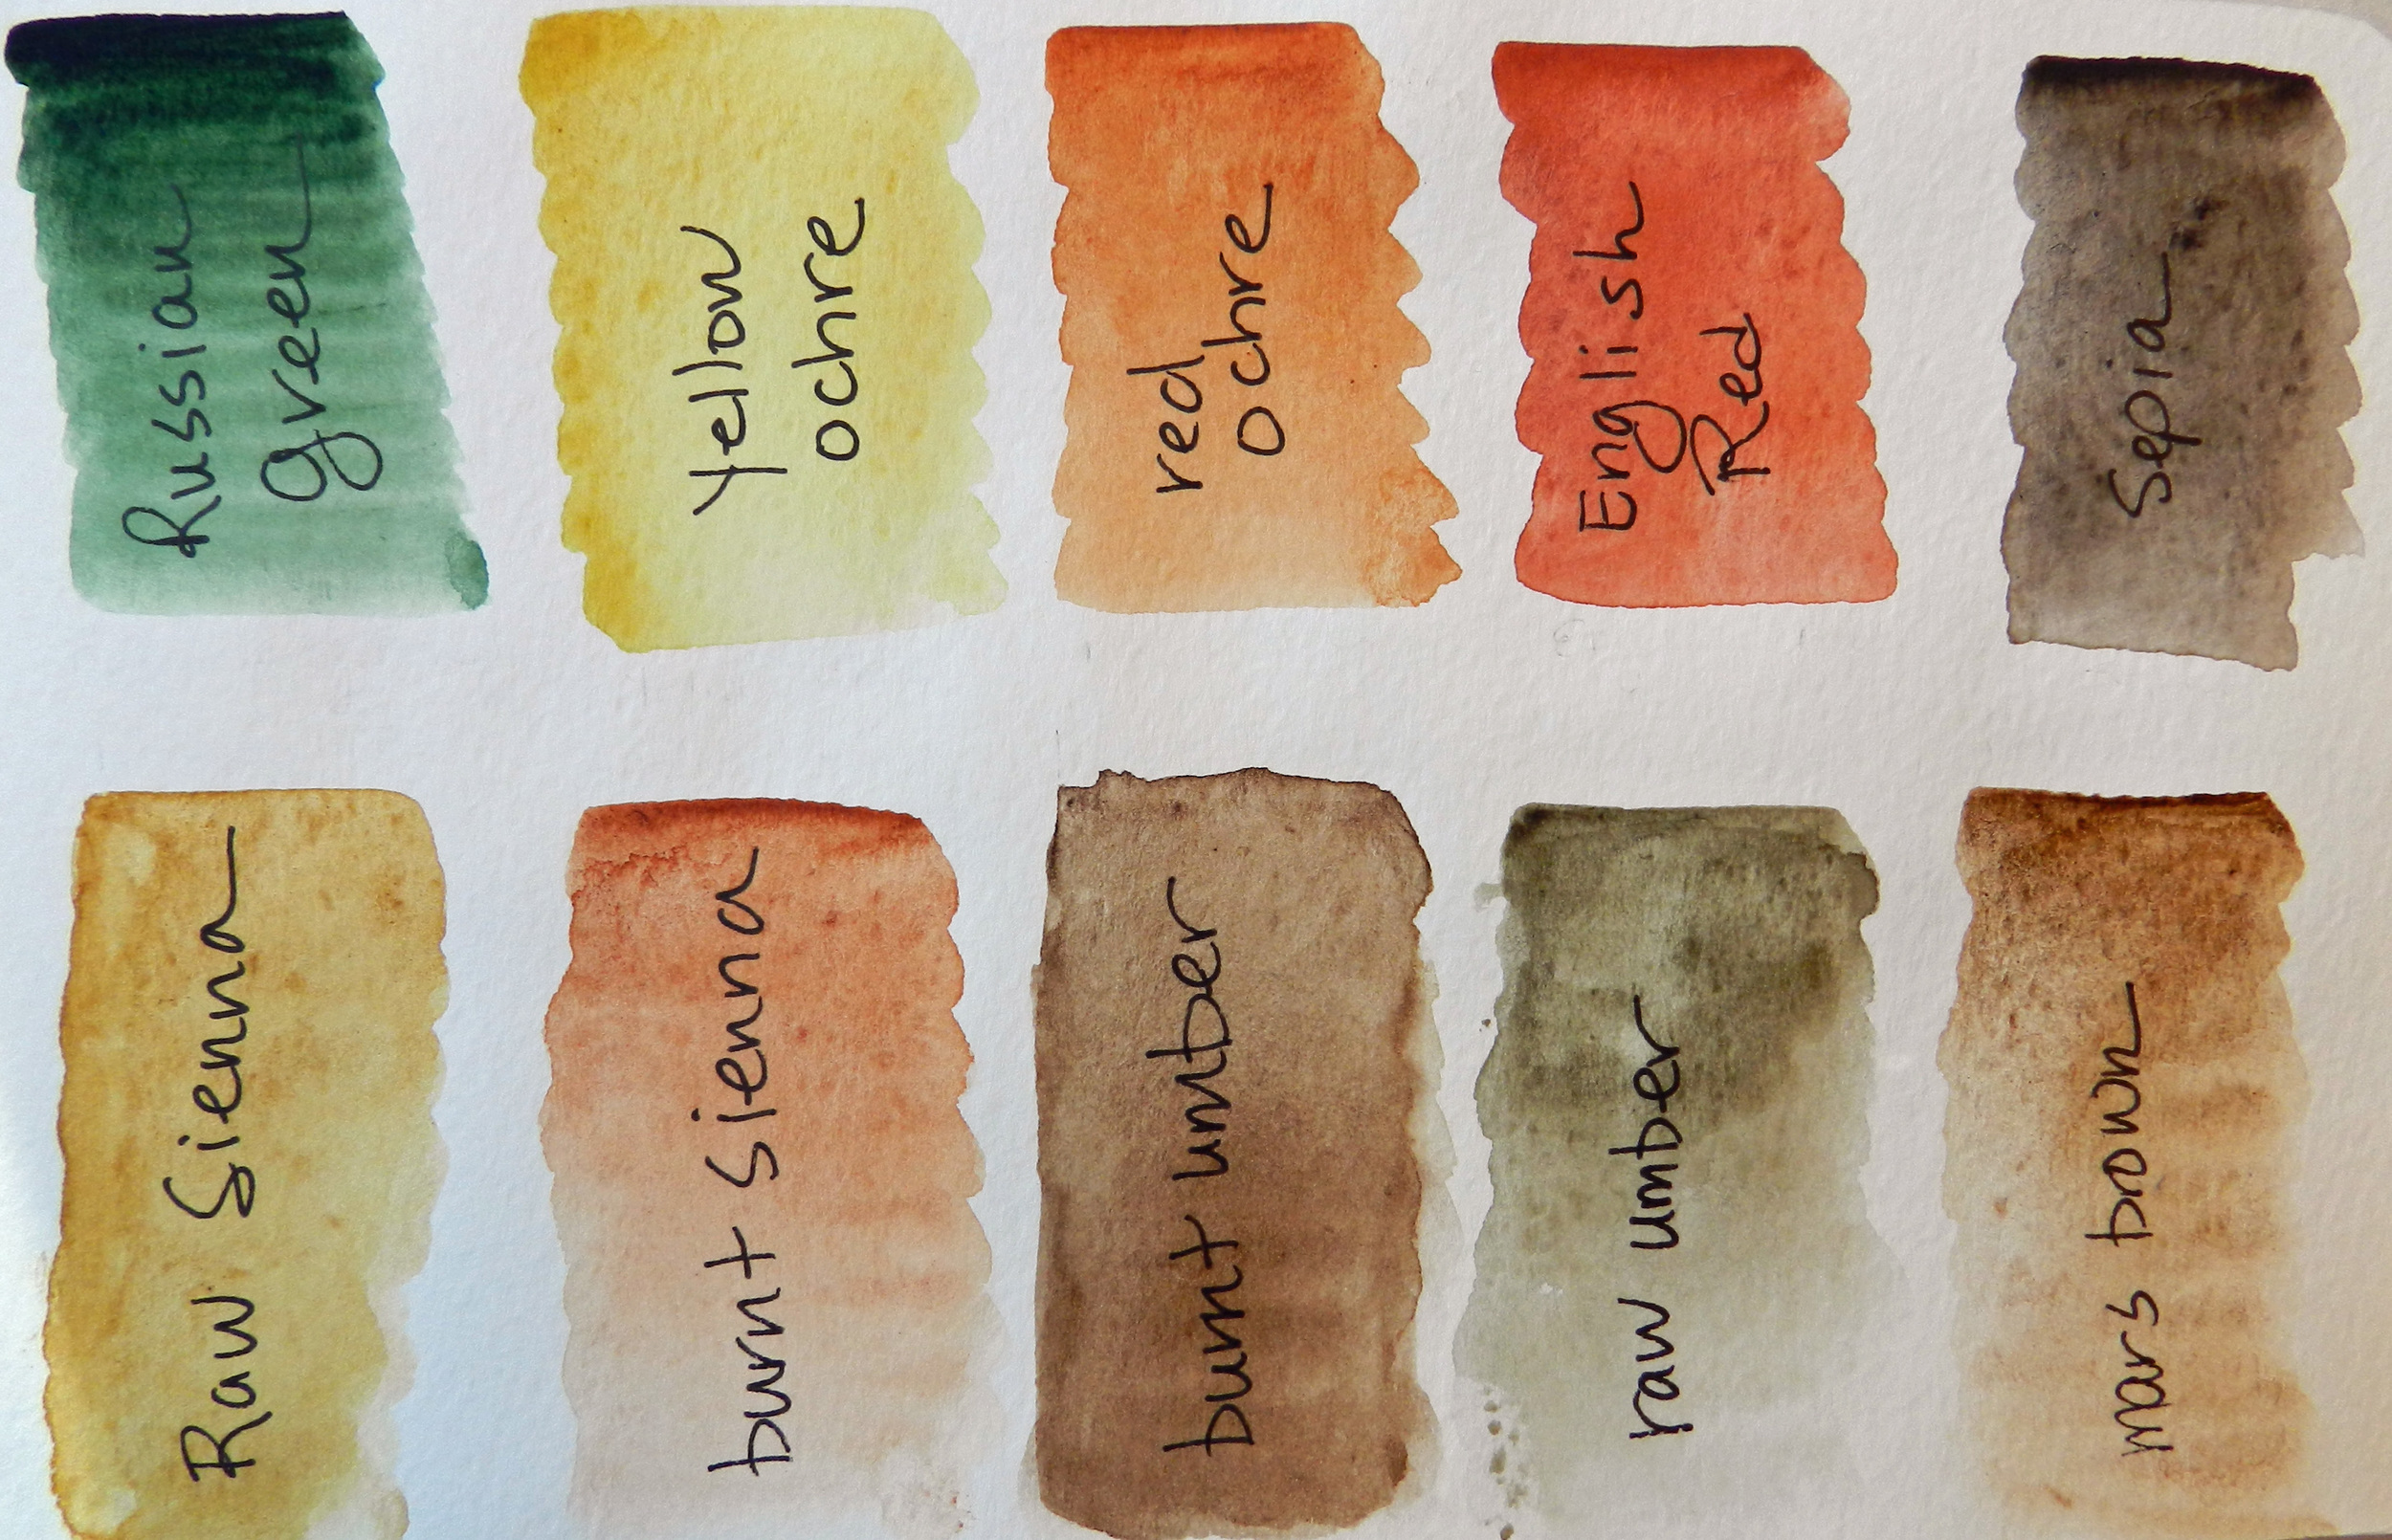 Russian
green
Yellow
ochre
red
ochre
English
Red
Sepia
Raw Sienna
burnt Sienna
burnt umber
raw umber
mars brown